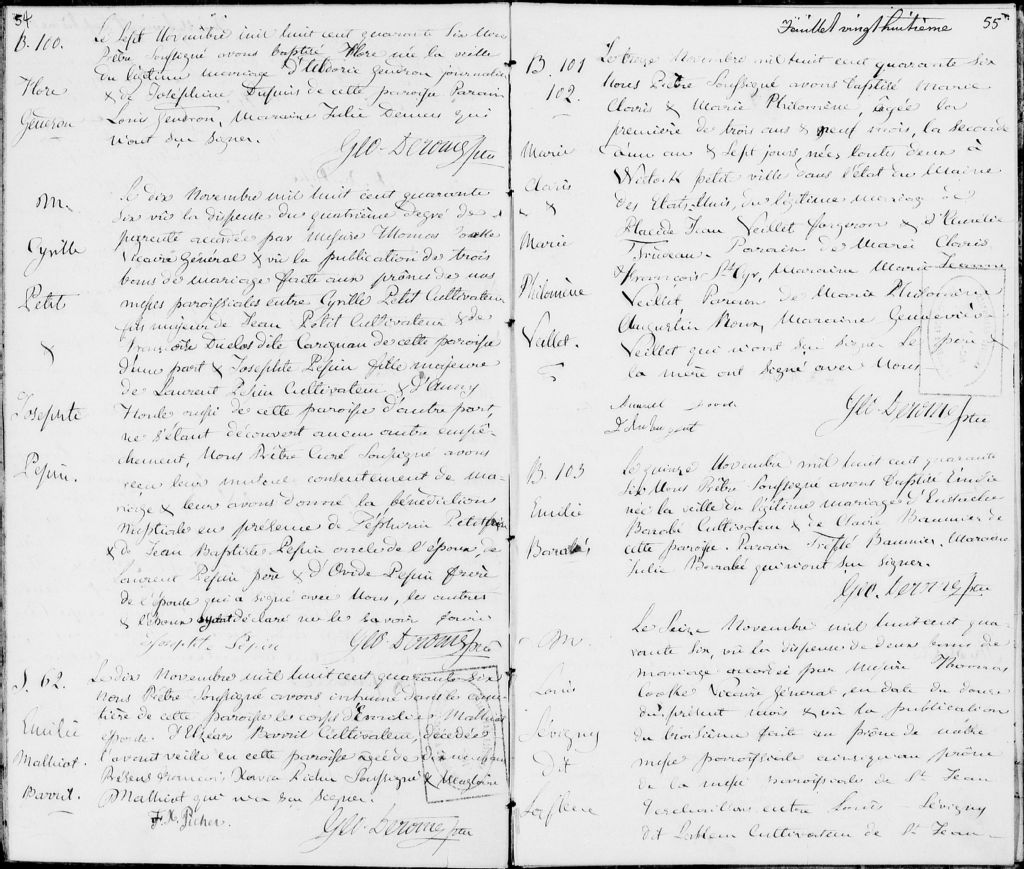 54
B. 100.
Flore
Gendron
Le Sept Novembre mil huit cent quarante six Nous
Prêtre Soussigné avons baptisé Flore née la veille
du légitime mariage d'Uldoric Gendron journalier
& de Josephine Dupuis de cette paroisse Parrain
Louis Gendron, Marraine Julie Demers qui
n'ont su signer.
Geo. Derome, ptre
M.
Cyrille
Petit
&
Josephte
Pepin.
Le dix Novembre mil huit cent quarante
six vu la dispense du quatrième degré de
parenté accordée par Messire Thomas Cooke
Vicaire Général & vu la publication de trois
bans de mariage faite aux prônes de nos
messes paroissiales entre Cyrille Petit Cultivateur
fils majeur de Jean Petit Cultivateur & de
Françoise Duclos dite Carignan de cette paroisse
d'une part & Josephte Pepin fille majeure
de Laurent Pepin Cultivateur & d'
Houle aussi de cette paroisse d'autre part,
ne s'étant découvert aucun autre empê-
chement, Nous Prêtre Curé Soussigné avons
reçu leur mutuel consentement de ma-
riage & leur avons donné la bénédiction
nuptiale en présence de Zéphirin Petit
& de Jean Baptiste Pepin oncle de l'époux, de
Laurent Pepin père & d'Ovide Pepin frère
de l'épouse qui a signé avec Nous, les autres
& l'Epoux ayant déclaré ne le savoir faire
Josephte Pepin
Geo. Derome, ptre
S. 62.
Emilie
Mathiot.
Bavoit.
Le dix Novembre mil huit cent quarante six
Nous Prêtre Soussigné avons inhumé dans le cime-
tière de cette paroisse le corps d'Emilie Mathiot
épouse d'Elzéar Bavoit Cultivateur, décédée
l'avant veille en cette paroisse agée de
Présens François Xavier Picher Soussigné &
Mathiot qui n'a su signer.
F. X. Picher.
Geo. Derome, ptre
Feuillet vingt huitième
55
B. 101
102.
Marie
Claris
&
Marie
Philomène
Veillet.
Le treize Novembre mil huit cent quarante six
Nous Prêtre Soussigné avons baptisé Marie
Claris & Marie Philomène, agée la
première de trois ans & neuf mois, la seconde
d'un an & sept jours, nées toutes deux à
petit ville dans l'état du Maine
des Etats-Unis, du légitime mariage de
Placide Jean Veillet forgeron & d'Emelie
Trudeau. Parrain de Marie Claris
François St. Cyr, Marraine Marie Jeanne
Veillet Parrain de Marie Philomène
Augustin Roux, Marraine Geneviève
Veillet qui n'ont su signer Le père &
la mère ont signé avec Nous
Geo. Derome, ptre
B. 103
Emilie
Barabé
Le quinze Novembre mil huit cent quarante
six Nous Prêtre Soussigné avons baptisé Emilie
née la veille du légitime mariage d'Eustache
Barabé Cultivateur & de Claire Baumier de
cette paroisse. Parrain Trefflé Baumier. Marraine
Julie Barabé qui n'ont su signer.
Geo. Derome, ptre
M.
Louis
Lévigny
Dit
Lafleur
Le Seize Novembre mil huit cent qua-
rante six, vu la dispense de deux bans de
mariage accordée par Messire Thomas
Cooke Vicaire Général en date du douze
du présent mois & vu la publication
du troisième faite au prône de nôtre
messe paroissiale ainsi qu'au prône
de la messe paroissiale de St. Jean
Deschaillons entre Louis Lévigny
dit Lafleur Cultivateur de St. Jean